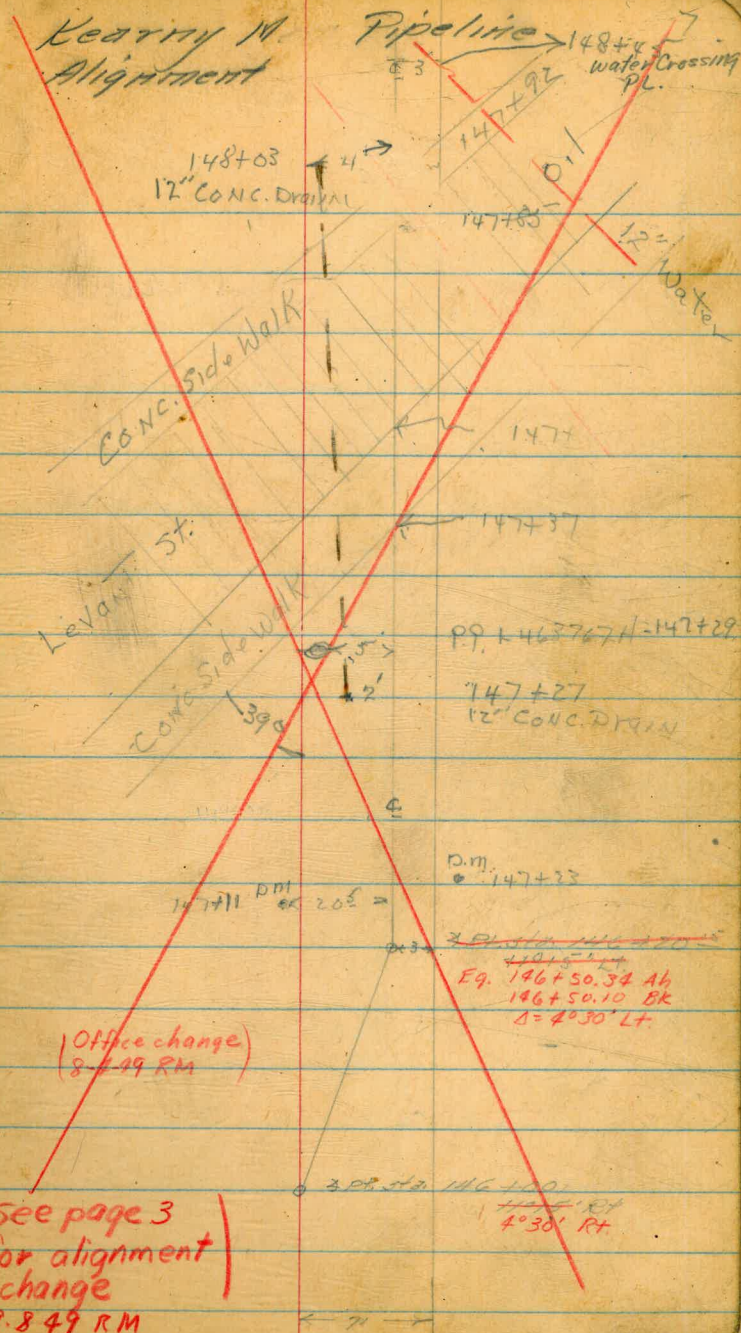 Kearny M. Pipeline
Alignment
148+45
Water Crossing
PL.
℄ 3
147+92
148+03
4'
12" CONC. Drain
0.1
147+85
12"
Water
CONC. Side Walk
147+
147+37
Levant St.
Conc. Side Walk
P.P. 147+29
5
2'
147+27
12" CONC. Drain
39°
℄
P.M.
147+23
147+11 P.M. 20⁵
3
∡ Pt. Sta. 146+50
Eq. 146+50.34 Ah
146+50.10 BK
Δ=4°30' Lt
(Office change)
RM
∡ Pt. Sta. 146+00
Rt
4°30' Rt
See page 3
for alignment
change
8.8.49 RM